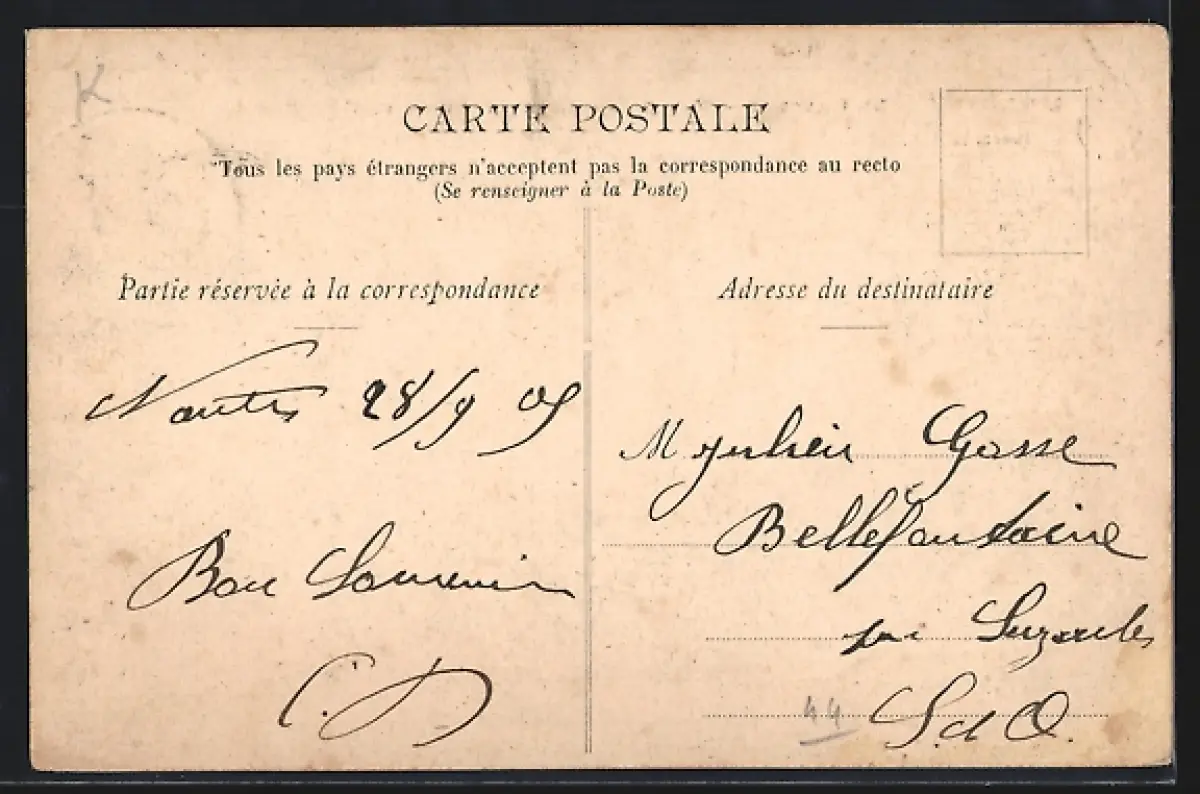 K
CARTE POSTALE
Tous les pays étrangers n'acceptent pas la correspondance au recto
(Se renseigner à la Poste)
Partie réservée à la correspondance
Adresse du destinataire
Nantes 28/9 05
Bon Souvenir
C. D
M Julien Gosse
Bellefontaine
par Luzarches
S. et O.
44